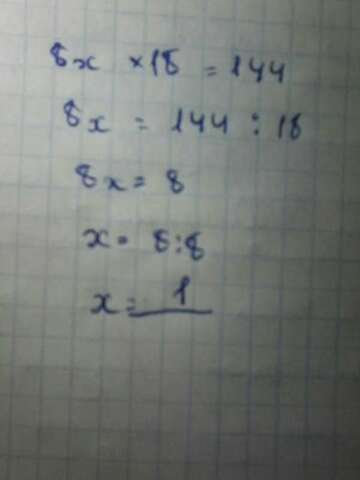 8x × 18 = 144
8x = 144 : 18
8x = 8
x = 8:8
x = 1